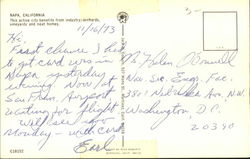 NAPA, CALIFORNIA
This active city benefits from industry, orchards,
vineyards and near homes.
11/16/73
Hi,
First chance I had
to get card was in
Napa yesterday
evening. Now at
San Fran. Airport
waiting for flight
Will see you
Monday - with care
Earl
Ms Helen O'Connell
Nav. Sec. Engr. Fac.
3801 Nebraska Ave. N.W.
Washington D.C.
20390
C18252